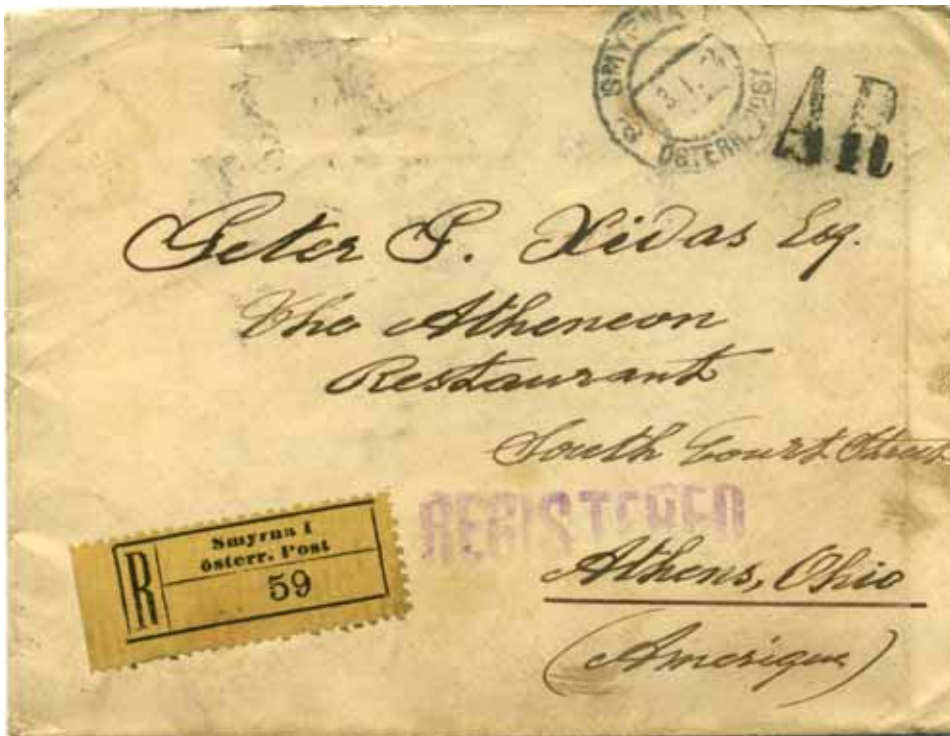 SMYRNA
ÖSTERR. POST
AR
Peter P. Xidas Esq.
The Atheneon
Restaurant
South Court Street
REGISTERED
Athens, Ohio
(Amerique)
R
Smyrna 1
österr. Post
59